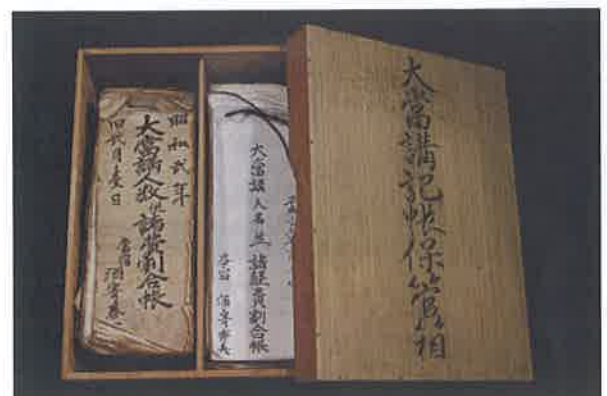 大當講記帳保管箱
大當講人名並諸経費割合帳
昭和弐年
大當講人数並諸費割合帳
旧弐月壱日